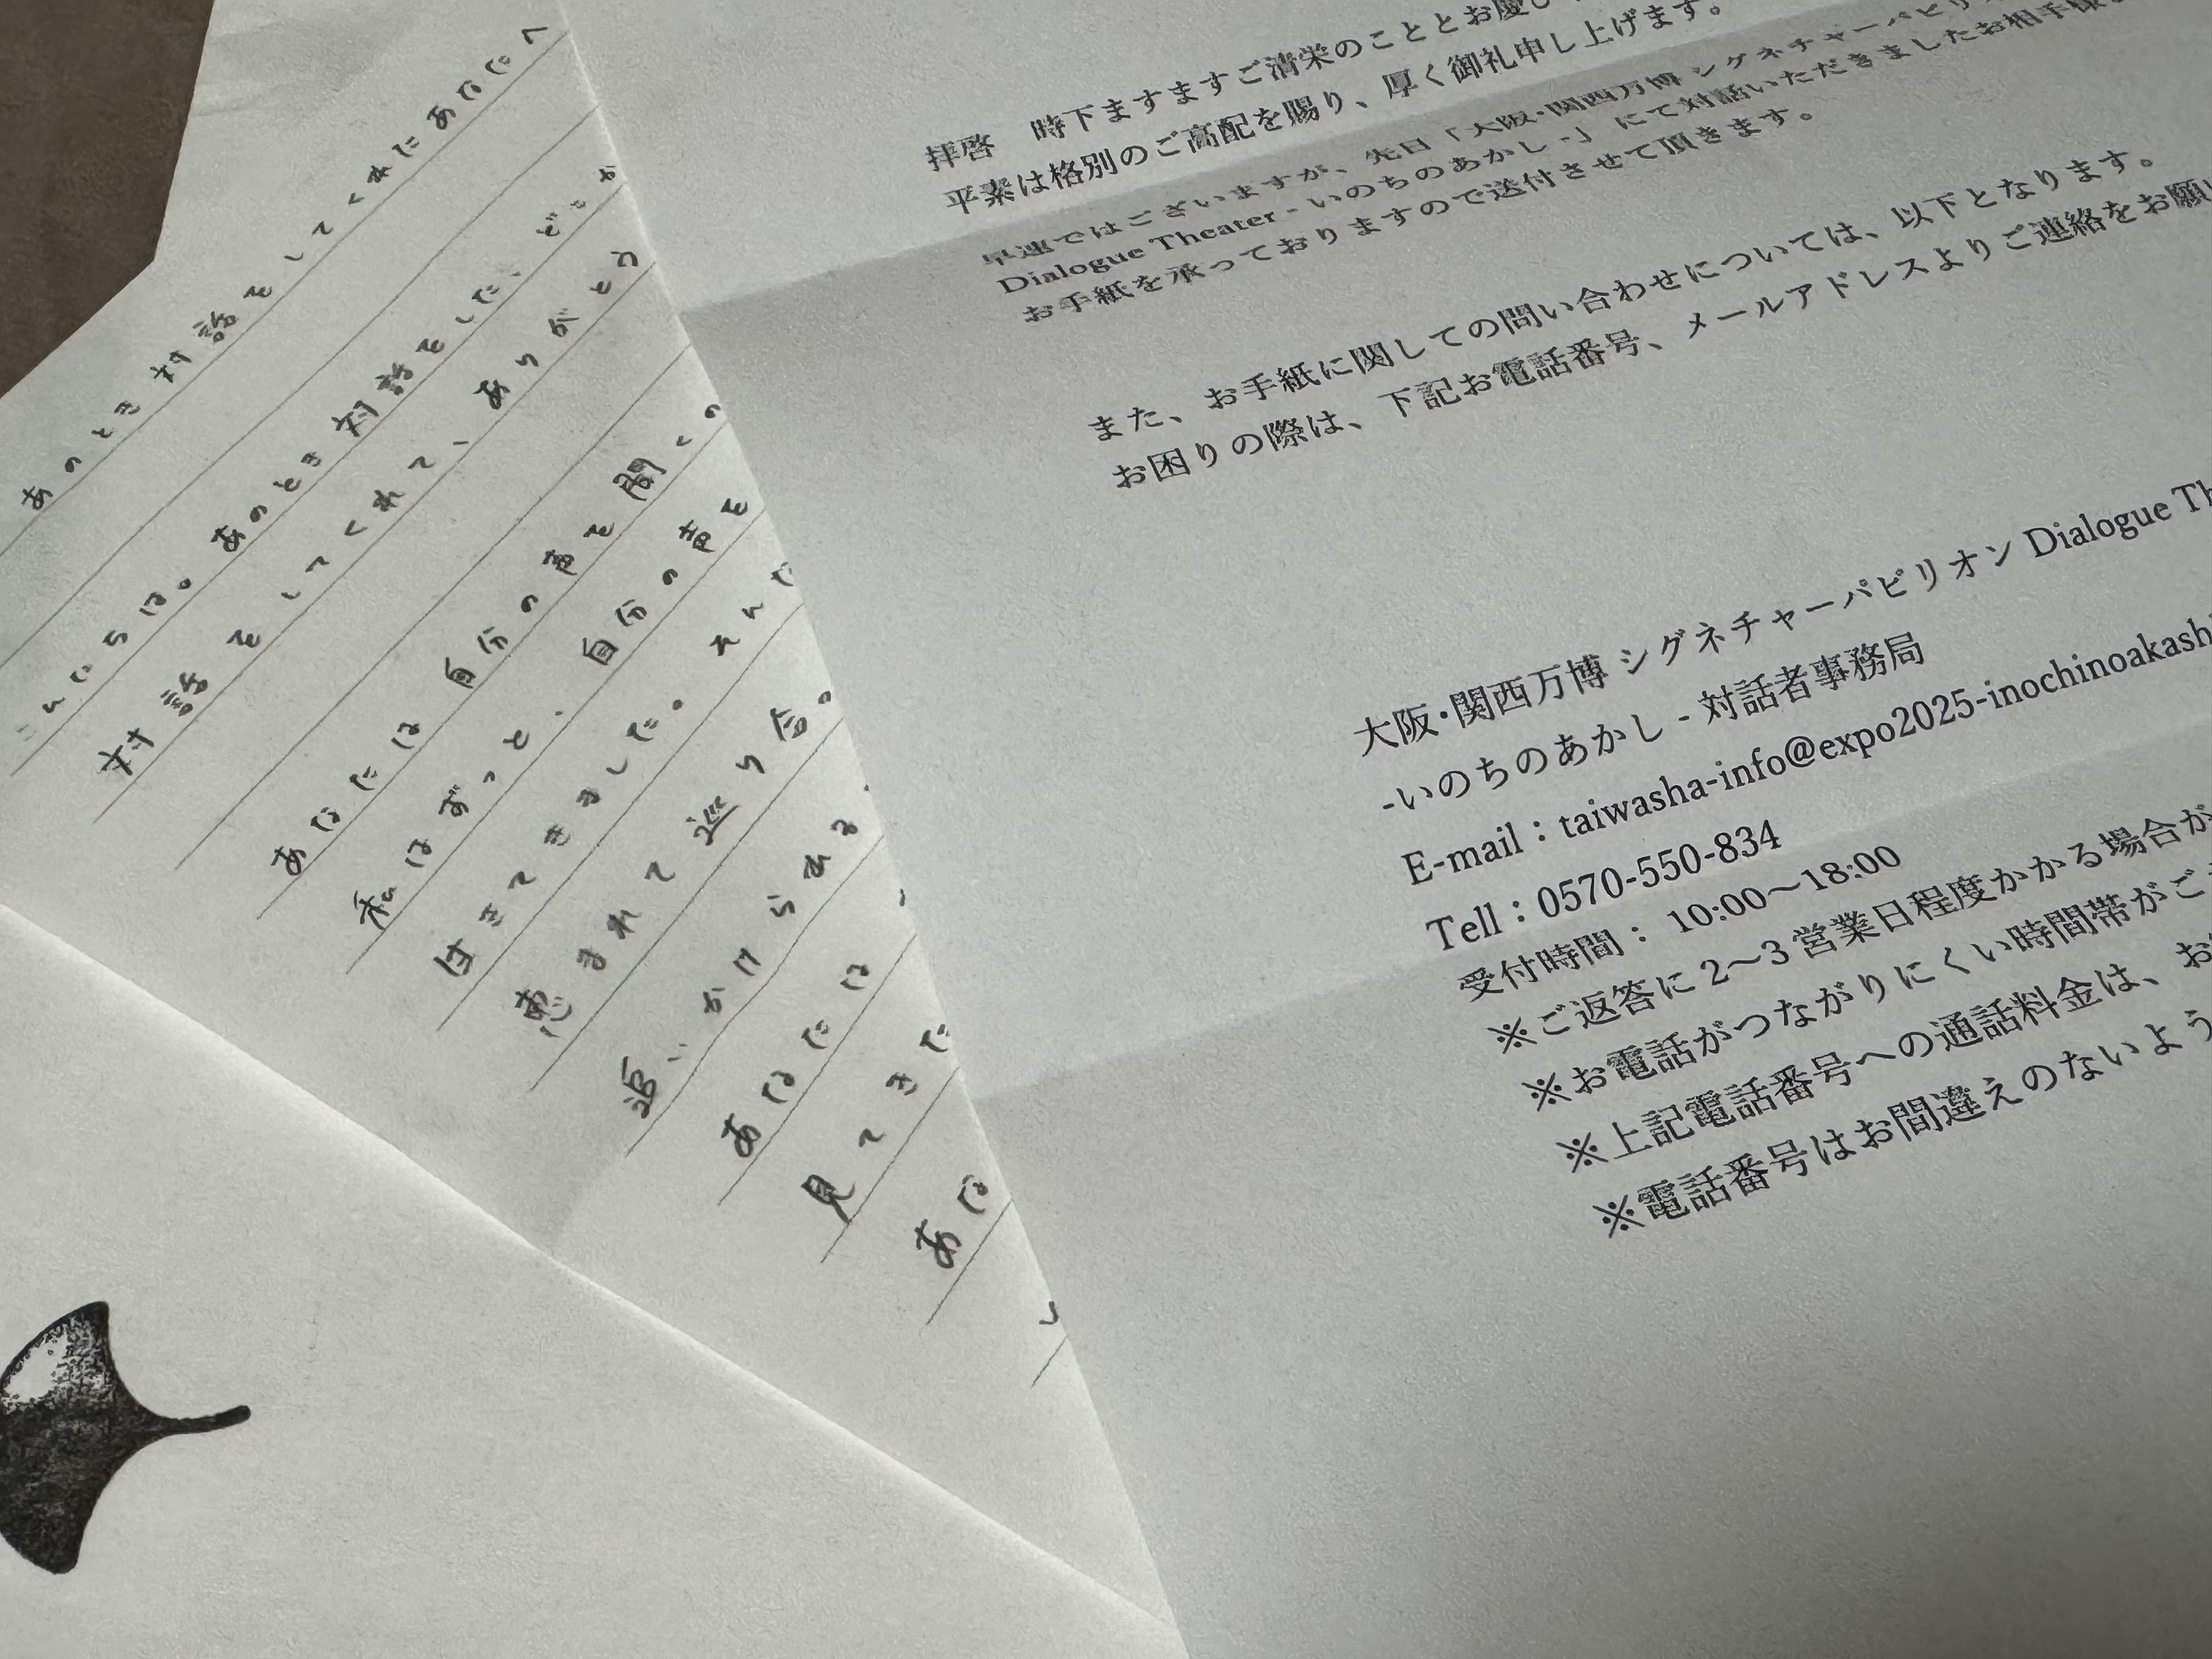 あのとき対話をしてくれたあなたへ
こんにちは。あのとき対話をした、ど
対話をしてくれて、ありがとう
あなたは自分の声を聞く
私はずっと、自分の声を
生きてきました。
恵まれて巡り会
追いかけられる
あなたは
見てき
あな
し
拝啓 時下ますますご清栄のこととお慶び
平素は格別のご高配を賜り、厚く御礼申し上げます。
早速ではございますが、先日「大阪・関西万博 シグネチャーパビリ
Dialogue Theater - いのちのあかし -」にて対話いただきましたお相手様
お手紙を承っておりますので送付させて頂きます。
また、お手紙に関しての問い合わせについては、以下となります。
お困りの際は、下記お電話番号、メールアドレスよりご連絡をお願
大阪・関西万博 シグネチャーパビリオン Dialogue Th
-いのちのあかし - 対話者事務局
E-mail：taiwasha-info@expo2025-inochinoakash
Tell：0570-550-834
受付時間： 10:00～18:00
※ご返答に 2～3 営業日程度かかる場合が
※お電話がつながりにくい時間帯がご
※上記電話番号への通話料金は、お
※電話番号はお間違えのないよう